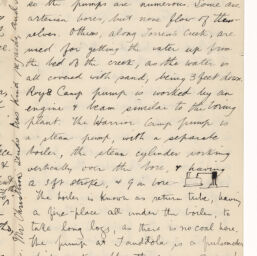 so the pumps are numerous. Some are
artesian bores, but none flow of them-
selves. Others, along Torrens Creek, are
used for getting the water up from
the bed of the creek, as the water is
all covered with sand, being 3 feet down.
Roys Camp pump is worked by an
engine & beam similar to the boring
plant. The Warrior Camp pump is
a steam pump, with a separate
boiler, the steam cylinder working
vertically over the bore, & having
a 3ft stroke, & 9 in bore
The boiler is known as return tube, having
a fire-place all under the boiler, to
take long logs, as there is no coal here.
The pump at is a pulsometer